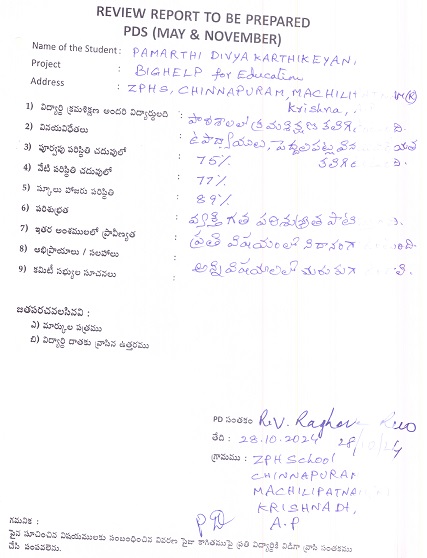 REVIEW REPORT TO BE PREPARED
PDS (MAY & NOVEMBER)
Name of the Student : PAMARTHI DIVYA KARTHIKEYANI,
Project : BIGHELP for Education
Address : ZPHS, CHINNAPURAM, MACHILI M(K)
Krishna,
1) విద్యార్థి క్రమశిక్షణ అందరి విద్యార్థులది : పాఠశాలలో క్రమశిక్షణ కలిగి ది.
2) వినయవిధేతలు : ఉపాధ్యాయులు, పెద్దలపట్ల విన యత
3) పూర్వపు పరిస్థితి చదువులో : 75% కలిగి ది.
4) నేటి పరిస్థితి చదువులో : 77%
5) స్కూలు హాజరు పరిస్థితి : 89%
6) పరిశుభ్రత : వ్యక్తిగత పరిశుభ్రత పాటి
7) ఇతర అంశములలో ప్రావీణ్యత : ప్రతి విషయంలో నిదానంగా ంది.
8) అభిప్రాయాలు / సలహాలు :
9) కమిటీ సభ్యుల సూచనలు : అన్ని విషయాలలో చురుకుగా
జతపరచవలసినవి :
ఎ) మార్కుల పత్రము
బి) విద్యార్థి దాతకు వ్రాసిన ఉత్తరము
PD సంతకం : R.V. Raghava Rao
తేది : 28.10.2024 28/10/24
గ్రామము : ZPH School
CHINNAPURAM
MACHILIPATNA
KRISHNA DT,
A.P
PD
గమనిక :
పైన సూచించిన విషయములకు సంబంధించిన వివరణ పైజా కాగితముపై ప్రతి విద్యార్థికి విడిగా వ్రాసి సంతకము
చేసి పంపవలెను.